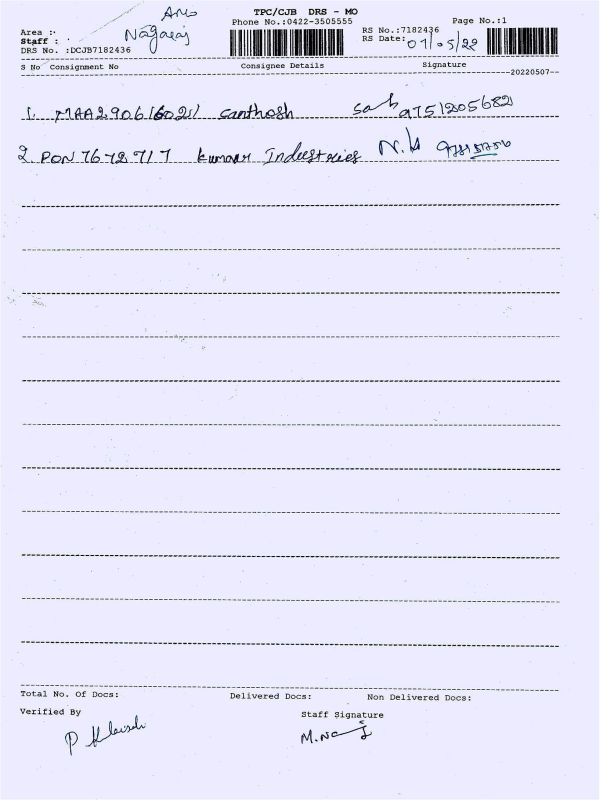 TPC/CJB DRS - MO
Phone No.:0422-3505555
Page No.:1
Area :
Nagaraj
RS No.:7182436
Staff :
RS Date: 07/05/22
DRS No. :DCJB7182436
S No Consignment No Consignee Details Signature
20220507
1. MAA290616021 Santhosh 9751205682
2 PON 7672717 kumar Industries N.k
Total No. Of Docs: Delivered Docs: Non Delivered Docs:
Verified By Staff Signature